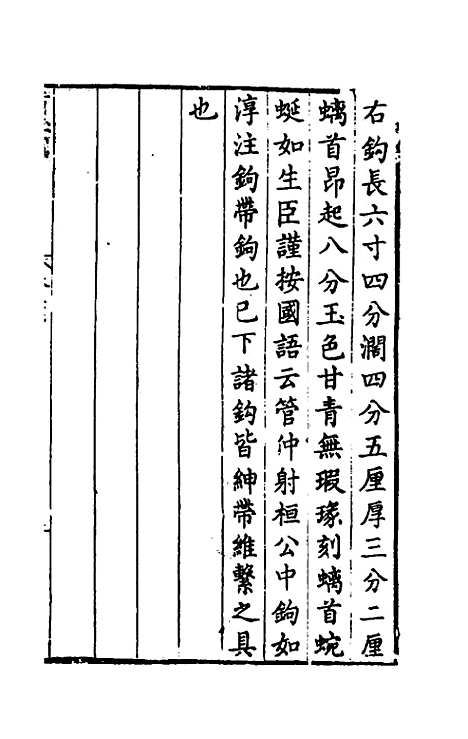 右鈎長六寸四分濶四分五厘厚三分二厘
螭首昂起八分玉色甘青無瑕瑑刻螭首蜿
蜒如生臣謹按國語云管仲射桓公中鉤如
淳注鉤帶鉤也已下諸鈎皆紳帶維繫之具
也